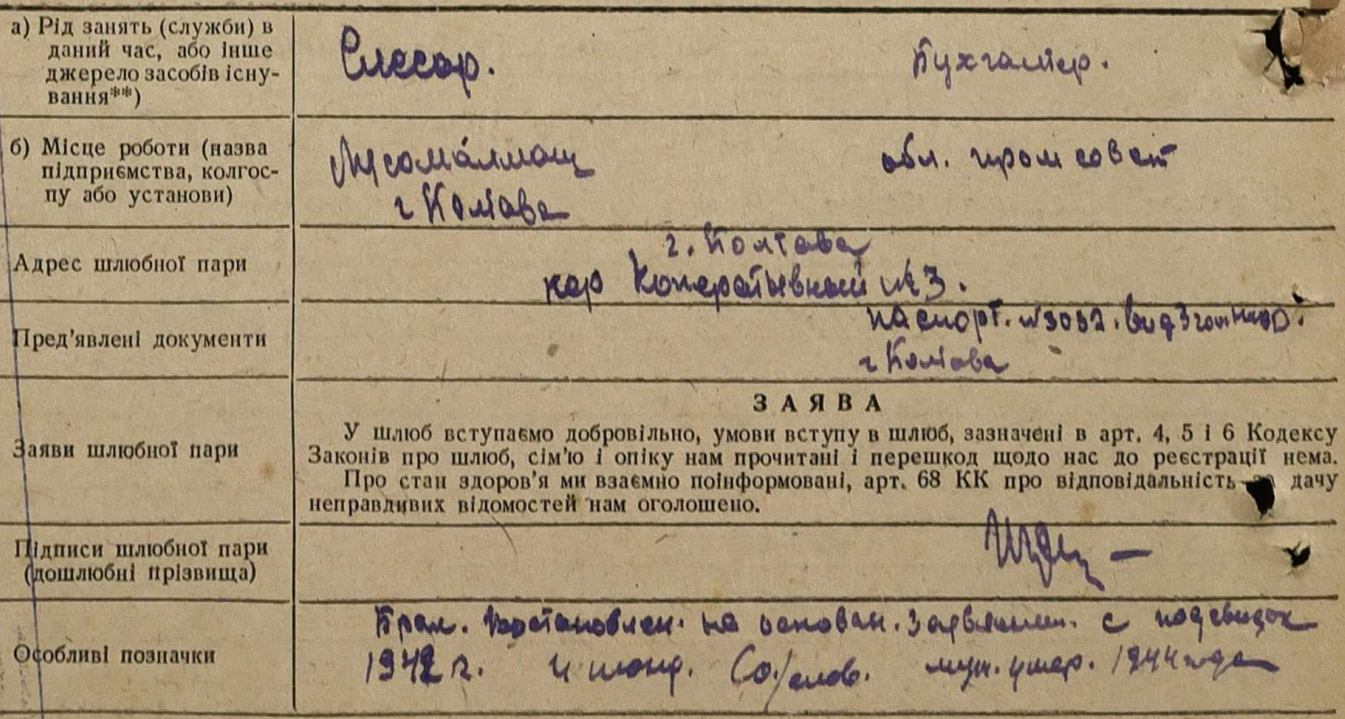 а) Рід занять (служби) в
даний час, або інше
джерело засобів існу-
вання**)
Слесар.
Бухгалтер.
б) Місце роботи (назва
підприємства, колгос-
пу або установи)
г Полтава
обл. промсовет
Адрес шлюбної пари
г. Полтава
пер Коперативный №3.
Пред'явлені документи
паспорт.
г Полтава
Заяви шлюбної пари
ЗАЯВА
У шлюб вступаємо добровільно, умови вступу в шлюб, зазначені в арт. 4, 5 і 6 Кодексу
Законів про шлюб, сім'ю і опіку нам прочитані і перешкод щодо нас до реєстрації нема.
Про стан здоров'я ми взаємно поінформовані, арт. 68 КК про відповідальність за дачу
неправдивих відомостей нам оголошено.
Підписи шлюбної пари
(дошлюбні прізвища)
Особливі позначки
Брак. востановлен. на основан. Заявлении. с
г. муж. умер. 1944 года